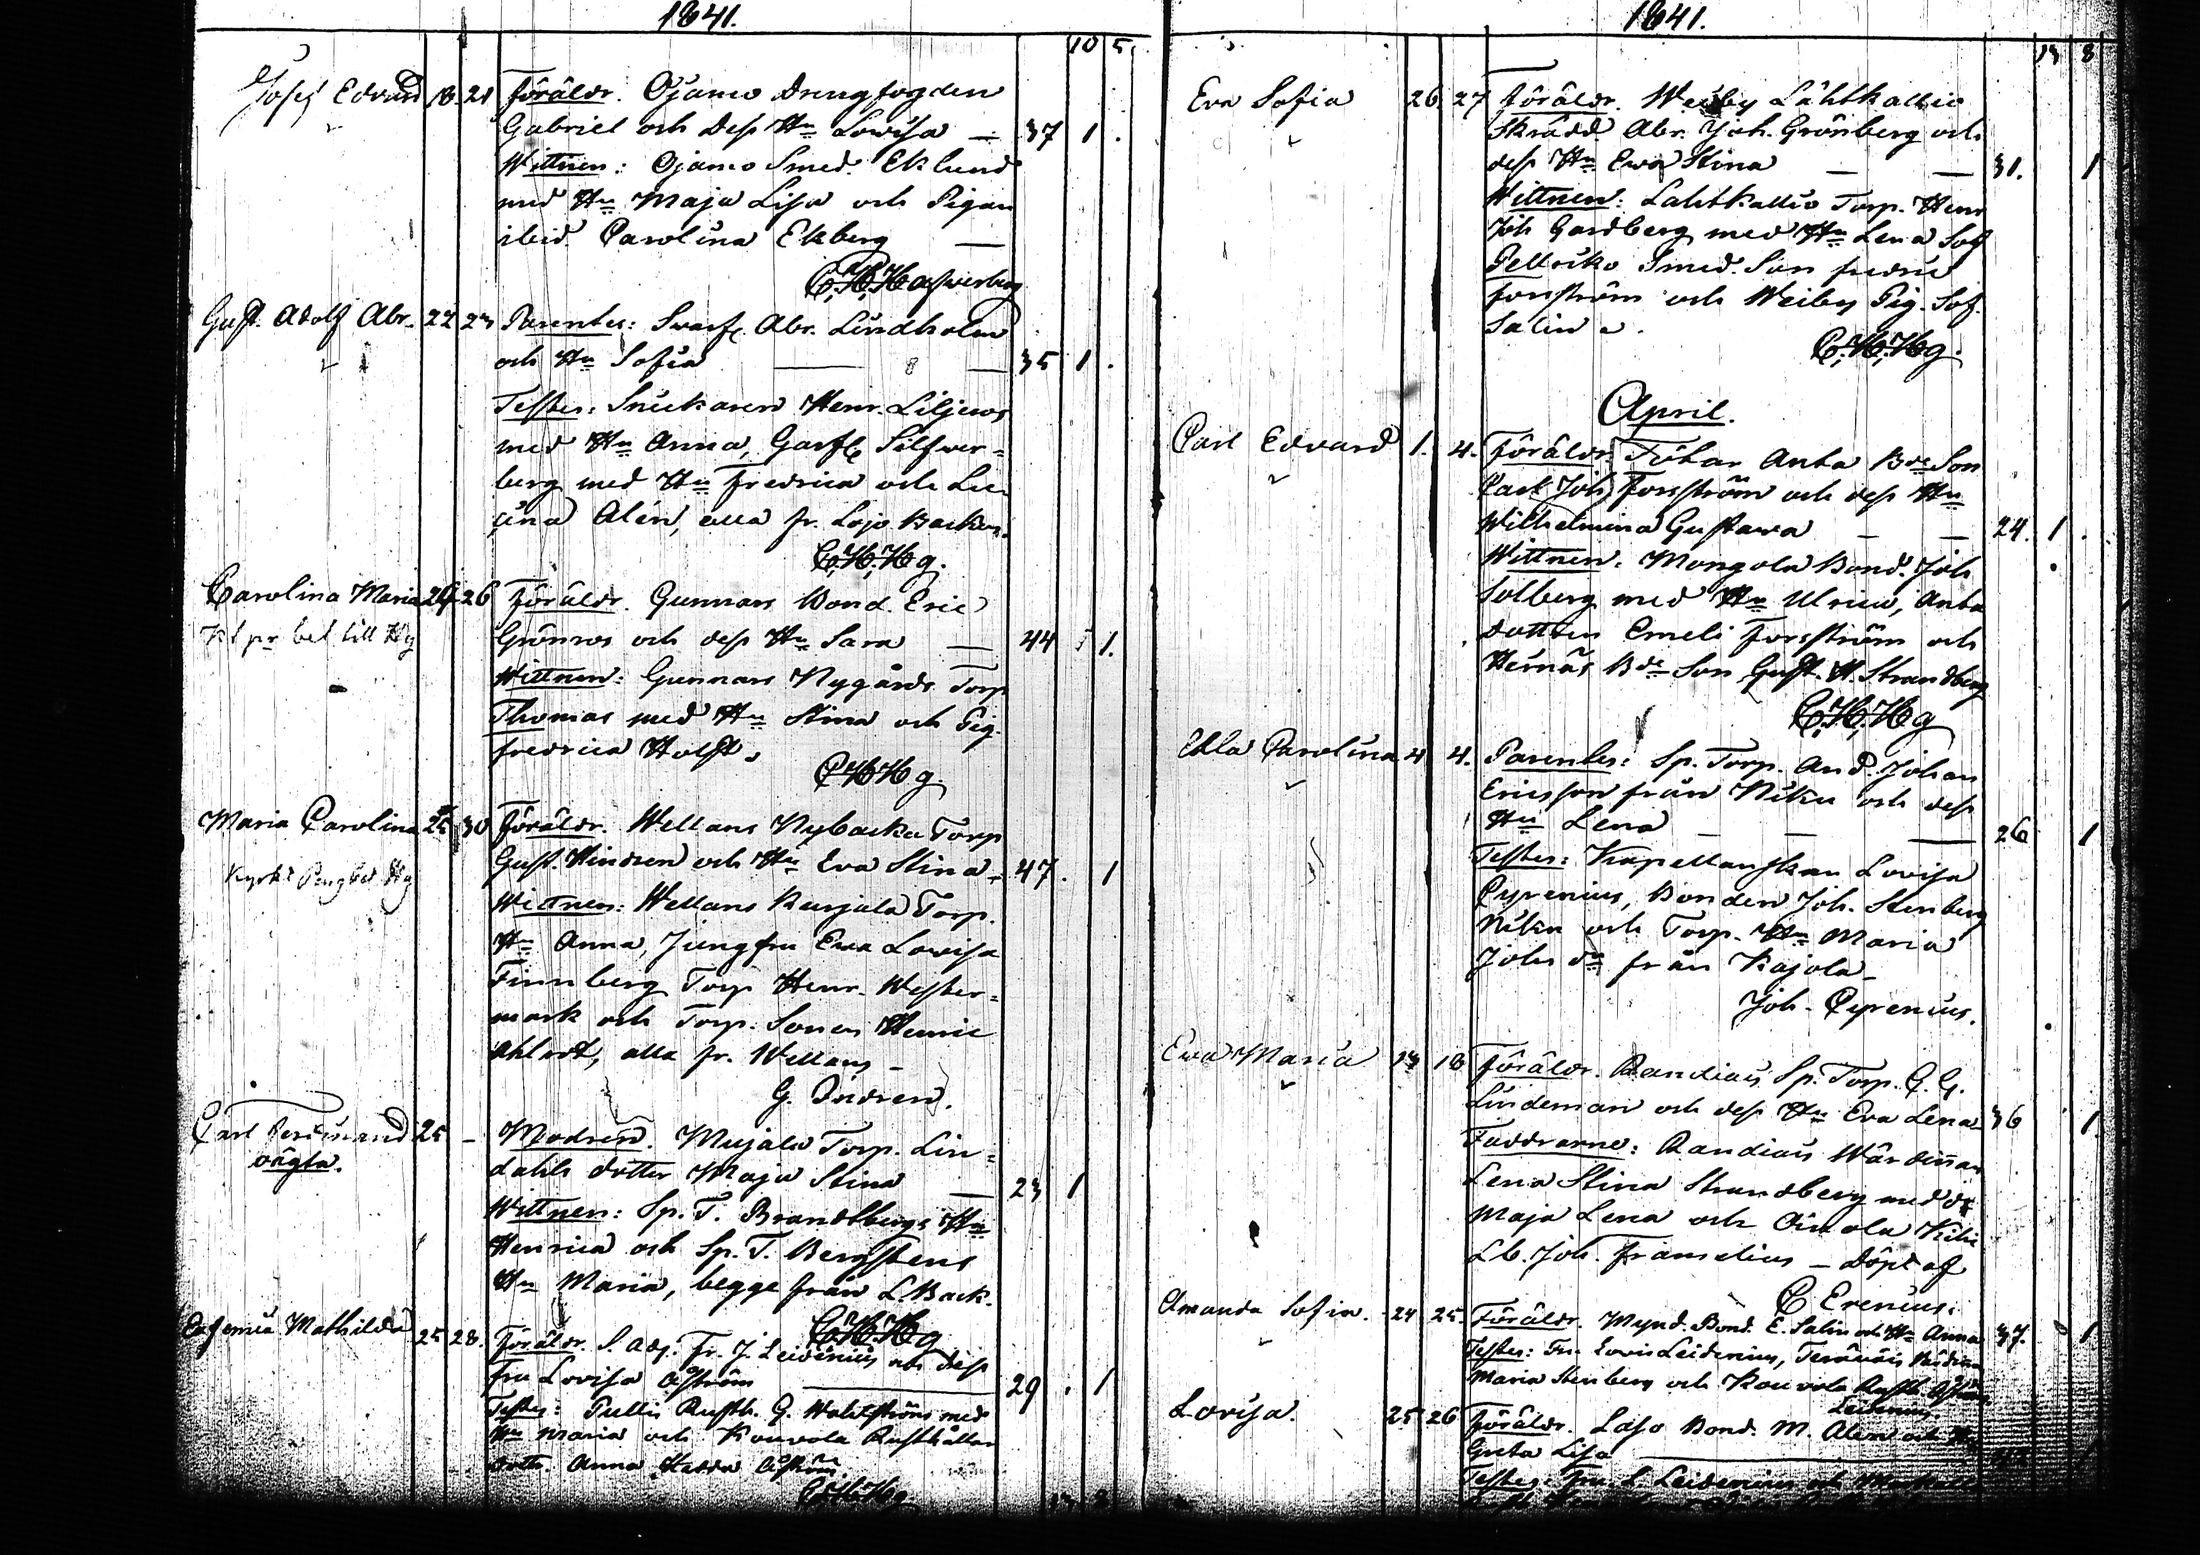 1841.
10 5
Josef Edvard 18. 21 Föräldr. Ojamo Drengfogden
Gabriel och dess Hu Lowisa — 37 1.
Wittnen: Ojamo Smed. Eklund
med Hu Maja Lisa och Pigan
ibid. Carolina Ekberg —
C.H. Hasverberg
Gust. Adolf Abr. 22 23 Parentes: Svarf. Abr. Lindholm
och Hu Sofia — — 35 1.
Testes: Snickaren Henr. Liljeros
med Hu Anna, Garf. Silfver-
berg med Hu Fredrica och
Alén, alla fr. Lojo Backen.
C.H. Hg.
Carolina Maria 24 26 Föräldr. Gunnars Bond. Eric
Kl pr bet till Hg Grönros och dess Hu Sara — 44 1.
Wittnen: Gunnars Nygårds Torp
Thomas med Hu Stina och Pig.
Fredrica Holst.
C.H. Hg.
Maria Carolina 25 30 Föräldr. Wellans Nybacka Torp
Gust. Hindren och Hu Eva Stina 47. 1
Wittnen: Wellans Kurjala Torp.
Hu Anna, Jungfru Eva Lovisa
Finnberg Torp Henr. Wester-
mark och Torp. Sonen Henric
alla fr. Wellans —
G. Indrén.
Carl Ferdinand 25 — Modren. Mujala Torp. Lin-
oägta. dahls dotter Maja Stina — 23 1
Wittnen: Sp. T. Brandtbergs Hu
Henrica och Sp. T. Bergstens
Hu Maria, begge från L. Back.
C.H. Hg
Eufemia Mathilda 25 28. Föräldr. S. Adj. Fr. J. Leidenius och dess
Fru Lovisa Åström — 29. 1
Testes: Pullis Rusth. G. Wahlström med
Hu Maria och Kouvola Rusthållar
dottr. Anna Hedda Åström.
C.H. Hg.
1841.
13 8
Eva Sofia 26 27 Föräldr. Weiby Lahtkallio
Skrädd Abr. Joh. Grönberg och
dess Hu Ewa Stina — — 31. 1
Wittnen: Lahtkallio Torp. Henr
Joh Gardberg med Hu Lena Sof
Pellsiko Smed. Son Fredric
Forsström och Weiby Pig. Sof.
Salin.
C.H. Hg.
April.
Carl Edvard 1. 4. Föräldr. Anta Bde Son
Carl Joh Forsström och dess Hu
Wilhelmina Gustava — — 24. 1.
Wittnen. Mongola Bond. Joh
Solberg med Hu Ulrica, Anta
dottren Emeli Forsström och
Hernäs Bde Son Gust. H. Strandberg
C.H. Hg
Ulla Carolina 4 4. Parentes: Sp. Torp. And. Johan
Ericsson från Niku och dess
Hu Lena — — — 26 1
Testes: Kapellanskan Lovisa
Cyrenius, Bonden Joh. Stenberg
Niku och Torp. Hu Maria
Johs dr från Kajola —
Joh. Cyrenius.
Ewa Maria 13 18 Föräldr. Randiais Sp. Torp. G. G.
Lindeman och dess Hu Eva Lena 36 1.
Faddrarne: Randiais Wärdinnan
Lena Stina Strandberg med dr
Maja Lena och Oinola Kihi
Lb. Joh. Framelius — Döpt af
C Erenius.
Amanda Sofia. 24 25. Föräldr. Mynd. Bond. E. Salin och Hu Anna 37. 1
Testes: Fru Lovis Leidenius, Teräväis Wärdinn
Maria Stenberg och Kouvola Rusth.
Leidenius.
Lovisa. 25 26 Föräldr. Laso Bond. M. Alen och Hu
Greta Lisa —
Testes: Fru L. Leidenius och